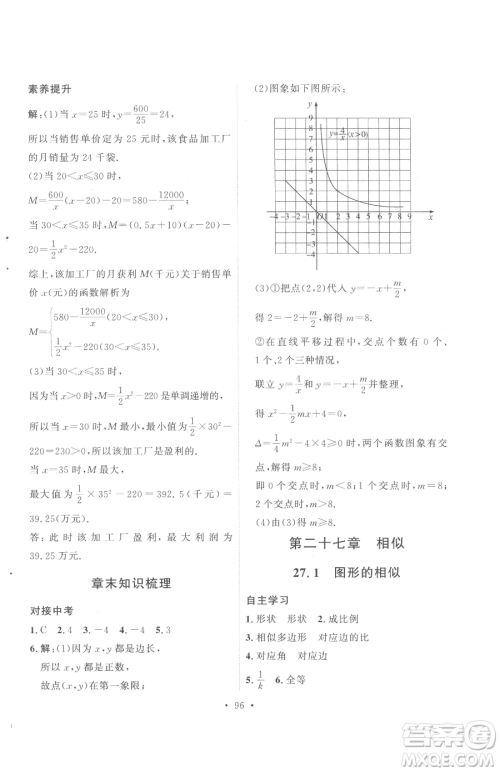 素养提升
解:(1)当 x=25 时,y=600/25=24,
所以当销售单价定为 25 时,该食品加工厂
的月销量为 24 千袋.
(2)当 20<x≤30 时,
M=600/x(x-20)-20=580-12000/x
当 30<x≤35 时,M=(0.5x+10)(x-
20)-20=1/2x²-220.
综上,该加工厂的月获利 M(千元)关于销售单
价 x(元)的函数解析为
M={580-12000/x(20<x≤30),
1/2x²-220(30<x≤35).
(3)当 30<x≤35 时,
因为当 x>0 时,M=1/2x²-220 是单调递增的,
所以当 30<x≤35 时,M 最小值为1/2×30²-
220=230>0,所以该加工厂是盈利的.
当 x=35 时,M 最大,
最大值为1/2×35²-220=392.5(千元)=
39.25(万元).
答:此时该加工厂盈利,最大利润为
39.25 万元.
章末知识梳理
对接中考
1.C 2.4 3.-4 4.-4 5.3
6.解:(1)因为 x,y 都是边长,
所以 x,y 都是正数,
故点(x,y)在第一象限;
(2)图象如下图所示:
y
y=4/x(x>0)
8
7
6
5
4
3
2
1
-4 -3 -2 -1 O 1 2 3 4 5 6 7 8 9 x
-1
-2
-3
-4
(3)①把点(2,2)代入 y=-x+m/2
得 2=-2+m/2,解得 m=8.
②在直线平移过程中,交点有 0 个、1
个、2 个三种情况,
联立 y=4/x和 y=-x+m/2并整理,
得 x²-1/2mx+4=0.
Δ=1/4m²-4×4≥0 时,两个函数图象有
交点,解得 m≥8;
即 0 个交点时,0<m<8;1 个交点时,m=8;
2 个交点时 m>8.
(4)由(3)得:m≥8.
第二十七章 相似
27.1 图形的相似
自主学习
1.形状 形状 2.成比例
3.相似多边形 对应边的比
4.对应角 对应边
5.1/k 6.全等
· 96 ·